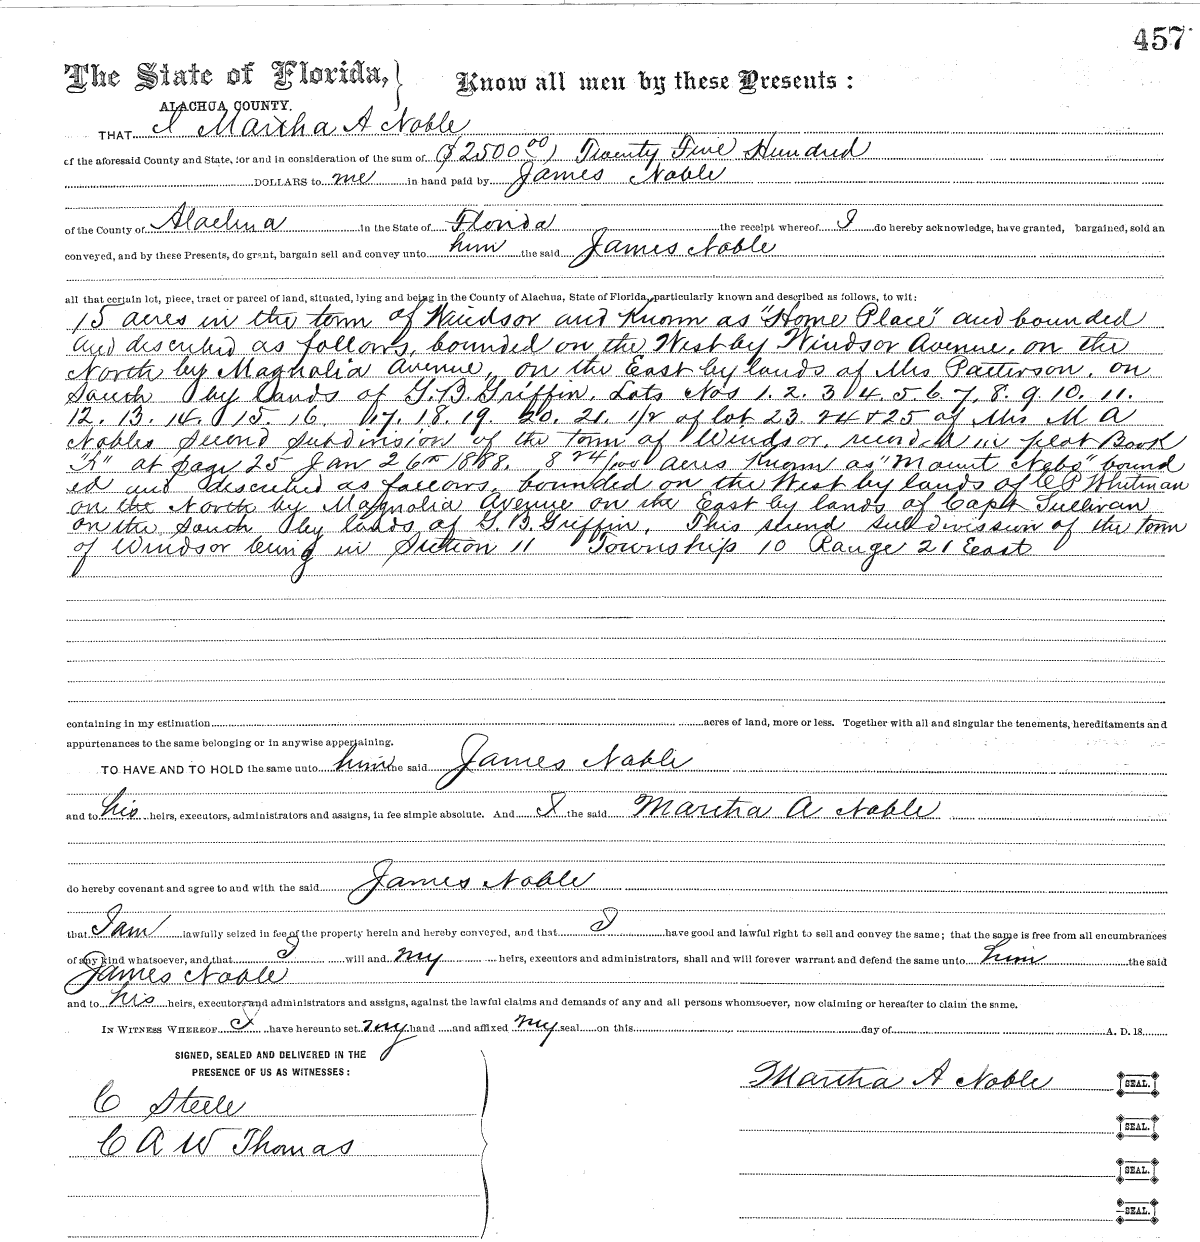 457
The State of Florida, Know all men by these Presents :
ALACHUA COUNTY.
THAT I Martha A Noble
of the aforesaid County and State, for and in consideration of the sum of ($2500.00) Twenty Five Hundred
DOLLARS to me in hand paid by James Noble
of the County of Alachua in the State of Florida the receipt whereof I do hereby acknowledge, have granted, bargained, sold an
conveyed, and by these Presents, do grant, bargain sell and convey unto him the said James Noble
all that certain lot, piece, tract or parcel of land, situated, lying and being in the County of Alachua, State of Florida, particularly known and described as follows, to wit:
15 acres in the town of Windsor and Known as "Home Place" and bounded
and described as follows, bounded on the West by Windsor Avenue, on the
North by Magnolia Avenue, on the East by lands of Mrs Patterson, on
South by lands of G. B. Griffin. Lots Nos 1. 2. 3 4. 5. 6. 7. 8. 9. 10. 11.
12. 13. 14. 15. 16. 17. 18. 19. 20. 21. 1/2 of lot 23. 24 & 25 of Mrs M A
Nobles Second Subdivision of the town of Windsor, recorded in plat Book
"K" at page 25 Jan 26th 1888. 8 24/100 acres Known as "Mount Nebo" bound
ed and described as follows, bounded on the West by lands of Whitman
on the North by Magnolia Avenue on the East by lands of Capt Sullivan
on the South by lands of G. B. Griffin. This second subdivision of the town
of Windsor being in Section 11 Township 10 Range 21 East
containing in my estimation acres of land, more or less. Together with all and singular the tenements, hereditaments and
appurtenances to the same belonging or in anywise appertaining.
TO HAVE AND TO HOLD the same unto him the said James Noble
and to his heirs, executors, administrators and assigns, in fee simple absolute. And I the said Martha A Noble
do hereby covenant and agree to and with the said James Noble
that I am lawfully seized in fee of the property herein and hereby conveyed, and that I have good and lawful right to sell and convey the same; that the same is free from all encumbrances
of any kind whatsoever, and that I will and my heirs, executors and administrators, shall and will forever warrant and defend the same unto him the said
James Noble
and to his heirs, executors and administrators and assigns, against the lawful claims and demands of any and all persons whomsoever, now claiming or hereafter to claim the same.
IN WITNESS WHEREOF I have hereunto set my hand and affixed my seal on this day of A. D. 18
SIGNED, SEALED AND DELIVERED IN THE
PRESENCE OF US AS WITNESSES :
Martha A Noble SEAL.
C Steele
SEAL.
C A W Thomas
SEAL.
SEAL.